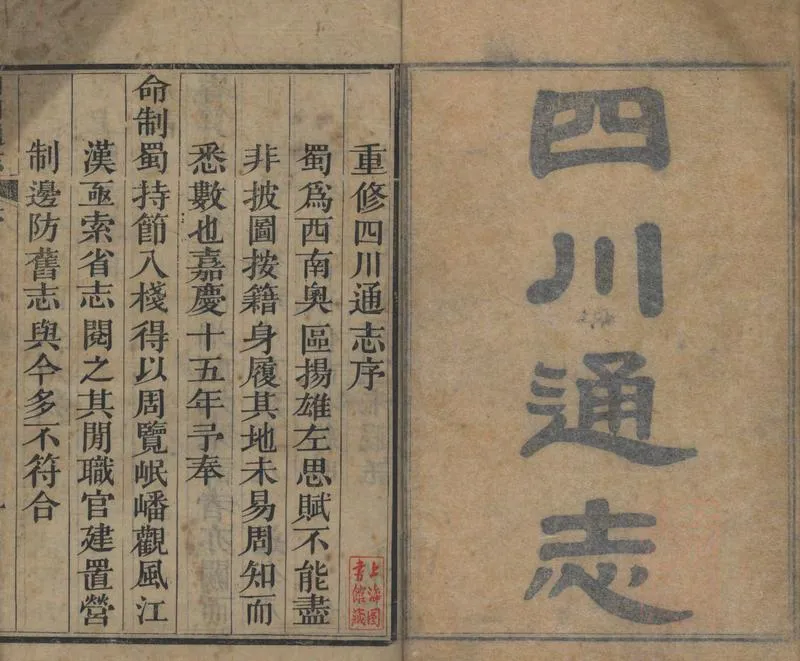 四川通志
重修四川通志序
蜀爲西南奧區揚雄左思賦不能盡
非披圖按籍身履其地未易周知而
悉數也嘉慶十五年予奉
命制蜀持節入棧得以周覽岷嶓觀風江
漢亟索省志閱之其閒職官建置營
制邊防舊志與今多不符合
上海圖
書館藏